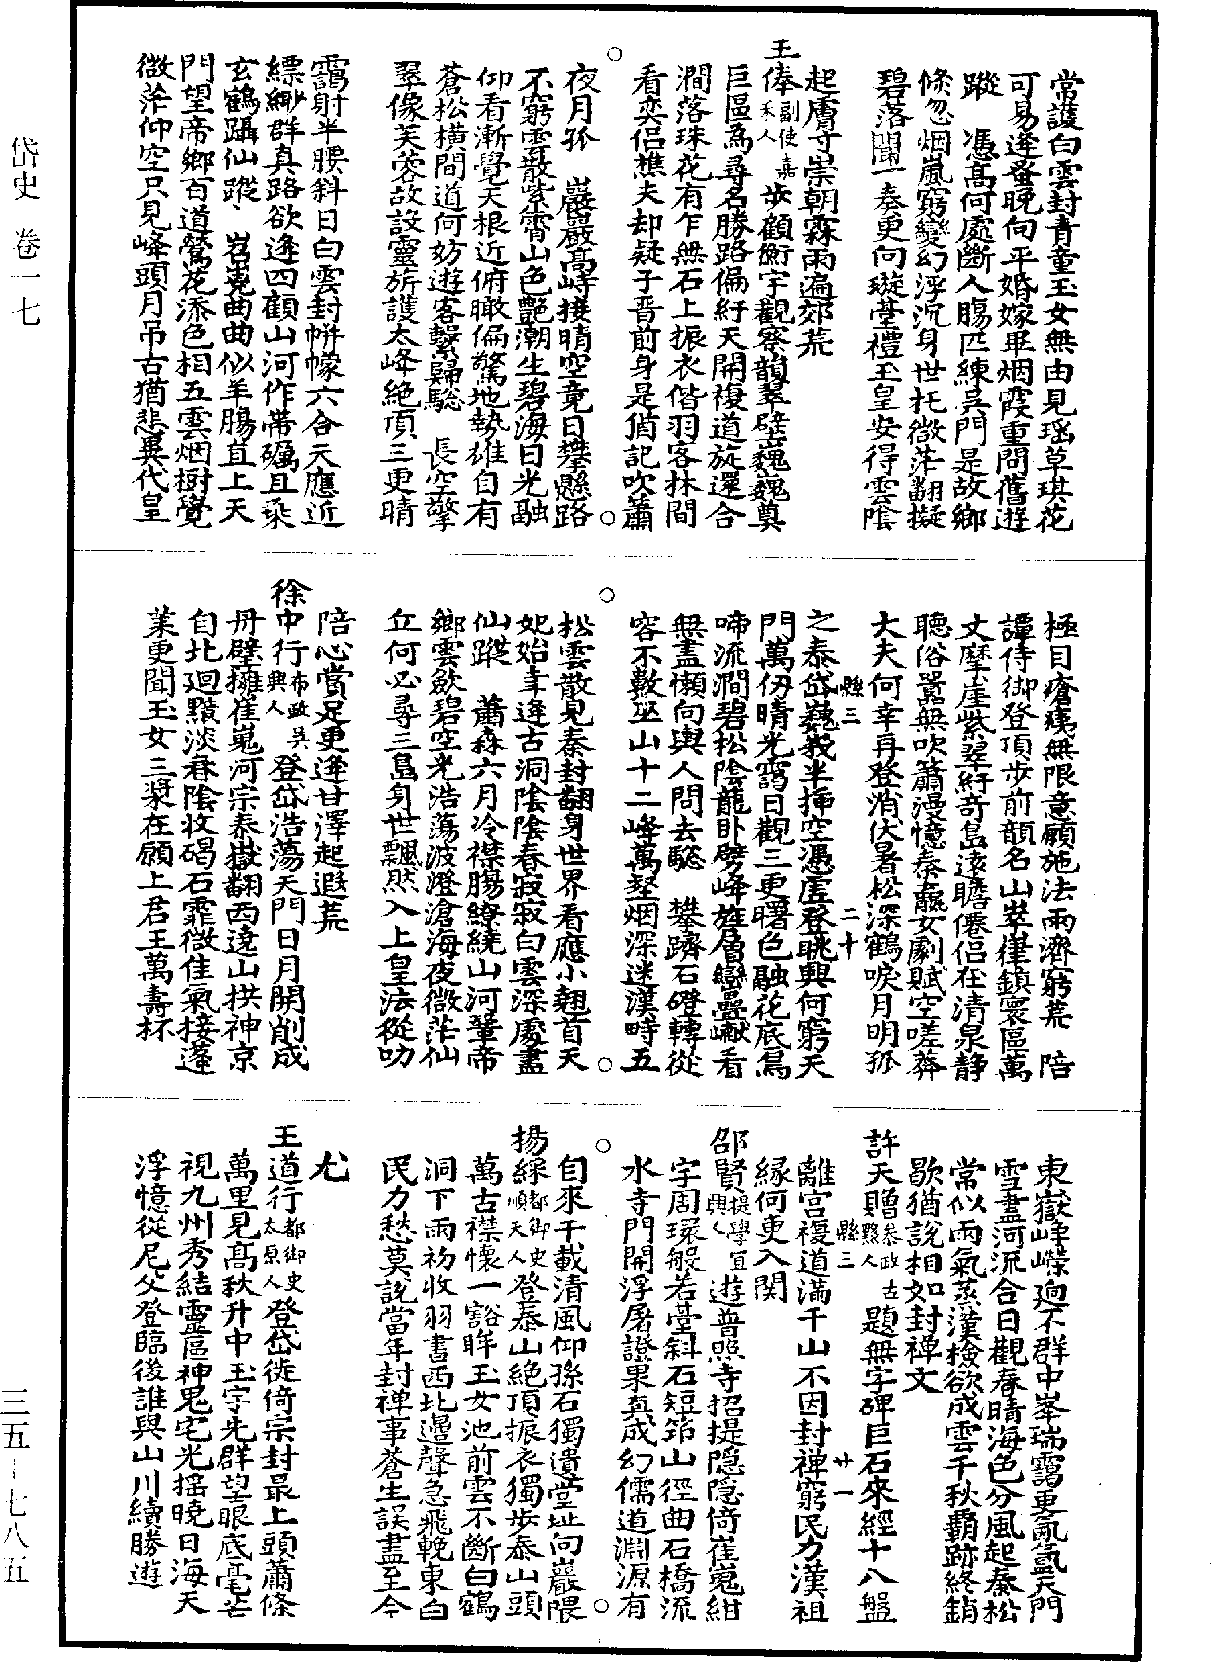 常護白雲封青童玉女無由見瑤草琪花
可易逢蚤晚向平婚嫁畢烟霞重問舊遊
蹤　憑高何處斷人腸匹練吳門是故鄉
倐忽烟嵐窮變幻浮沉身世托微茫翻擬
碧落聞一奏更向璇臺禮玉皇安得雲陰
起膚寸崇朝霖雨遍郊荒
王俸副使嘉禾人步顧衡宇觀察韻翠壁巍巍奠
巨區為尋名勝路偏紆天開複道旋還合
澗落珠花有乍無石上振衣偕羽客林間
看奕侶樵夫却疑子晉前身是猶記吹簫
夜月孤　巖巖高峙接晴空竟日攀懸路
不窮雲散紫霄山色艷潮生碧海日光融
仰看漸覺天根近俯瞰偏驚地勢雄自有
蒼松橫間道何妨遊客繫歸驄　長空擎
翠像芙蓉故設靈旂護太峰絶頂三更晴
靄射半腰斜日白雲封帡幪六合天應近
縹緲群真路欲逢四顧山河作帶礪且乘
玄鶴躡仙蹤　岧嶤曲曲似羊腸直上天
門望帝鄉百道鶯花添色相五雲烟樹覺
微茫仰空只見峰頭月吊古猶悲異代皇
極目瘡痍無限意願施法雨濟窮荒　陪
譚侍御登頂步前韻名山崒嵂鎮寰區萬
丈摩崖紫翠紆奇島遠瞻僊侶在清泉静
聽俗囂無吹簫漫憶秦嬴女劇賦空嗟莽
大夫何幸再登消伏暑松深鶴唳月明孤
縣三　二十
之泰岱巍峩半揷空憑虛登眺興何窮天
門萬仞晴光靄日觀三更曙色融花底鳥
啼流澗碧松陰龍卧劈峰旌層巒疊巘看
無盡懶向輿人問去驄　攀躋石磴轉從
容不數巫山十二峰萬壑烟深迷漢畤五
松雲散見秦封翻身世界看應小翹首天
妃始幸逢古洞陰陰春寂寂白雲深處盡
仙蹤　蕭森六月冷襟腸繚繞山河輦帝
鄉雲歛碧空光浩蕩波澄滄海夜微茫仙
丘何必尋三島身世飄然入上皇法從叨
陪心賞足更逢甘澤起遐荒
徐中行布政吳興人登岱浩蕩天門日月開削成
丹壁擁崔嵬河宗泰嶽翻西遶山拱神京
自北廻黯淡春陰收碣石霏微佳氣接蓬
萊更聞玉女三漿在願上君王萬壽杯
東嶽崢嶸逈不群中峯瑞靄更氤氳天門
雪盡河流合日觀春晴海色分風起秦松
常似雨氣蒸漢檢欲成雲千秋霸跡終銷
歇猶說相如封禅文
許天贈叅政古黟人題無字碑巨石來經十八盤
縣三　廿一
離宮複道滿千山不因封禅窮民力漢祖
緣何更入関
邵賢提學宜興人遊普照寺招提隐隐倚崔嵬紺
宇周環般若臺斜石短筇山徑曲石橋流
水寺門開浮屠證果真成幻儒道淵源有
自來千載清風仰孫石獨遺堂址向巖隈
揚綵都御史順天人登泰山絶頂振衣獨步泰山頭
萬古襟懷一豁眸玉女池前雲不斷白鶴
洞下雨初收羽書西北邉聲急飛輓東白
民力愁莫說當年封禅事蒼生誤盡至今
尤
王道行都御史太原人登岱徙倚宗封最上頭蕭條
萬里見高秋升中玉字先群望眼底毫芒
視九州秀結靈區神鬼宅光搖曉日海天
浮憶從尼父登臨後誰與山川續勝遊
岱史　卷一七
三五－七八五